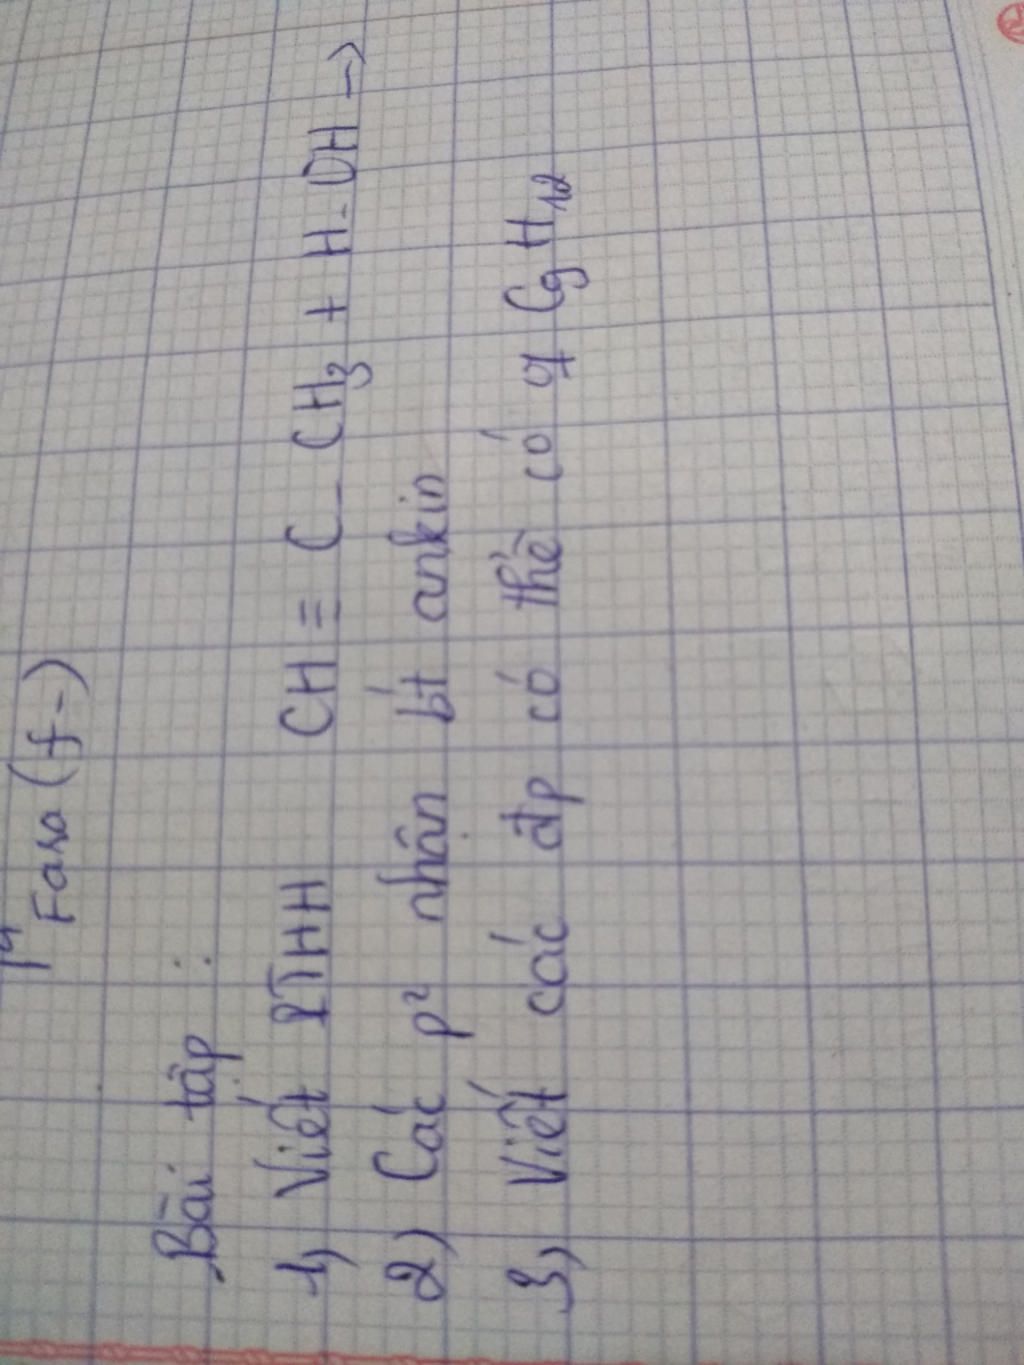 Fara (f-)
Bài tập :
1, Viết PTHH CH ≡ C - CH₃ + H - OH →
2) Các p² nhận bt ankin
3, Viết các đp có thể có of C₉H₁₂